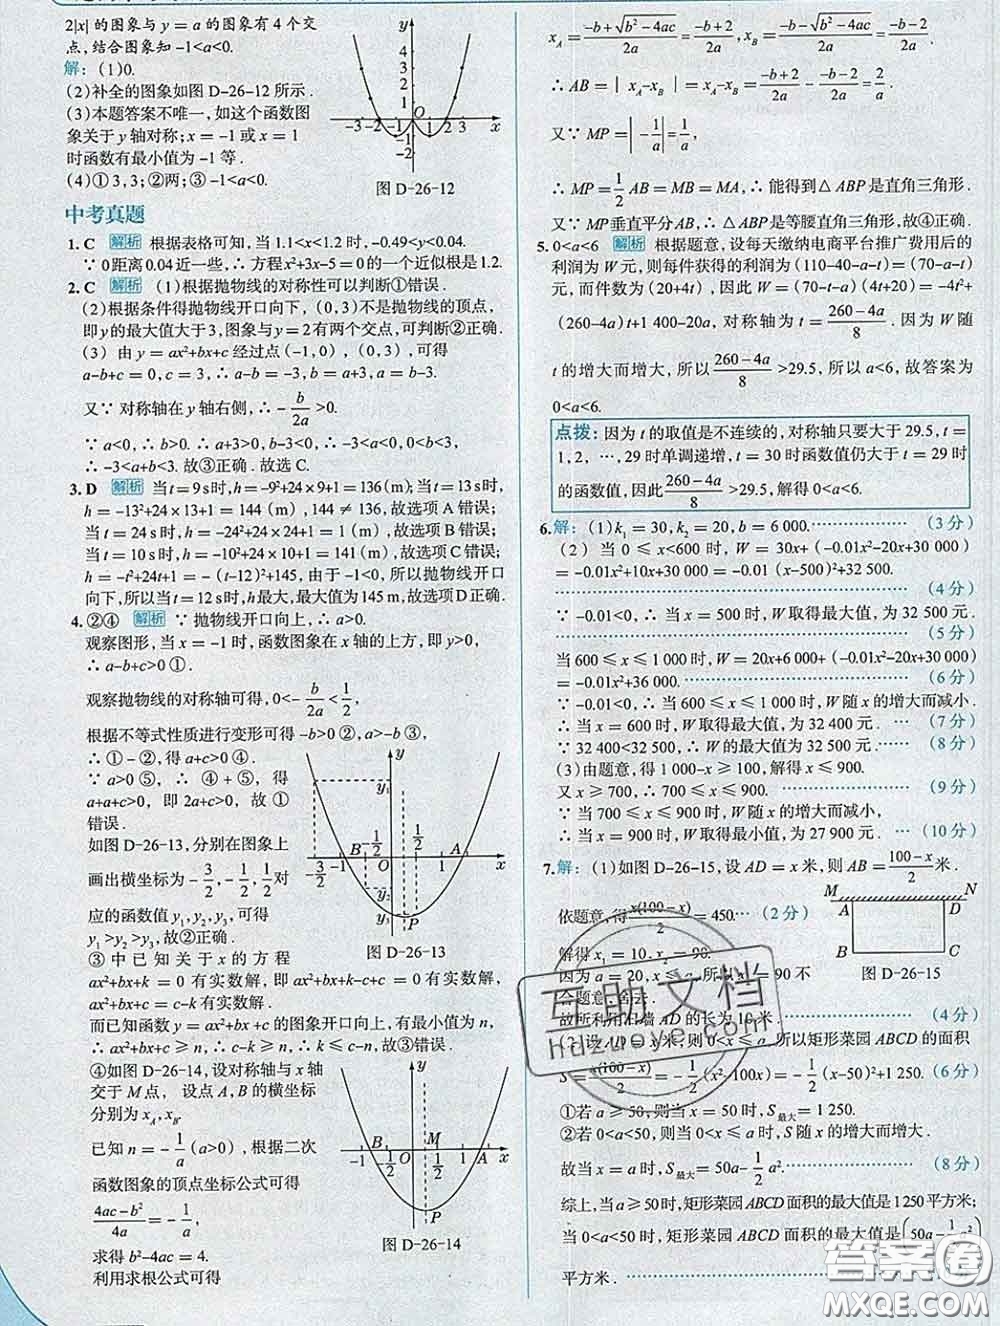 2|x| 的图象与 y = a 的图象有 4 个交
点,结合图象知 -1<a<0.
解：(1)0.
(2)补全的图象如图 D-26-12 所示.
(3)本题答案不唯一,如这个函数图
象关于 y 轴对称; x = -1 或 x = 1
时函数有最小值为 -1 等.
(4)① 3,3;②两;③ -1<a<0.
图 D-26-12
中考真题
1. C 解析 根据表格可知,当 1.1<x<1.2 时,-0.49<y<0.04.
∵ 0距离0.04近一些,∴ 方程x²+3x-5=0的一个近似根是1.2.
2. C 解析 (1)根据抛物线的对称性可以判断①错误.
(2)根据条件得抛物线开口向下,(0,3)不是抛物线的顶点,
即y的最大值大于3,图象与y=2有两个交点,可判断②正确.
(3) 由 y = ax²+bx+c 经过点(-1,0),(0,3),可得
a-b+c = 0,c = 3,∴ a-b = -3,b = a+3,a = b-3.
又∵ 对称轴在 y 轴右侧,∴ -b/2a >0.
∵ a<0,∴ b>0. ∴ a+3>0,b-3<0. ∴ -3<a<0,0<b<3.
∴ -3<a+b<3. 故③正确. 故选 C.
3. D 解析 当t=9s时,h=-9²+24×9+1=136(m);当t=13s时,
h=-13²+24×13+1=144(m),144≠136,故选项A错误;
当 t = 24 s时,h = -24²+24×24+1 = 1(m),故选项B错误;
当 t = 10 s时,h = -10²+24×10+1 = 141(m),故选项C错误;
h=-t²+24t+1=-(t-12)²+145,由于-1<0,所以抛物线开口
向下,所以当t=12s时,h最大,最大值为145m,故选项D正确.
4. ②④ 解析 ∵ 抛物线开口向上,∴ a>0.
观察图形,当 x = -1 时,函数图象在 x 轴的上方,即 y>0,
∴ a-b+c>0 ①.
观察抛物线的对称轴可得,0<-b/2a<1/2,
根据不等式性质进行变形可得 -b>0 ②,a>-b ③,
∴ ①-②,得 a+c>0 ④.
∵ a>0 ⑤,∴ ④+⑤,得
a+a+c>0,即 2a+c>0,故①
错误.
如图 D-26-13,分别在图象上
画出横坐标为 -3/2,-1/2,1/2对
应的函数值 y₁,y₂,y₃,可得
y₁>y₂>y₃,故②正确.
图 D-26-13
③中已知关于x的方程
ax²+bx+k = 0 有实数解,即 ax²+bx+k-c+c = 0 有实数解,
∴ ax²+bx+c = c-k 有实数解.
而已知函数 y = ax²+bx+c 的图象开口向上,有最小值为 n,
∴ ax²+bx+c ⩾ n,∴ c-k ⩾ n,∴ k ⩽ c-n,故③错误.
④如图 D-26-14,设对称轴与 x 轴
交于 M 点, 设点 A、B 的横坐标
分别为 x_A, x_B.
已知 n = -1/a (a>0),根据二次
函数图象的顶点坐标公式可得
(4ac-b²)/4a = -1/a,
求得 b²-4ac = 4.
利用求根公式可得
图 D-26-14
x_A = (-b+√(b²-4ac))/2a = (-b+2)/2a, x_B = (-b-√(b²-4ac))/2a = (-b-2)/2a.
∴ AB = |x_A-x_B| = (-b+2)/2a - (-b-2)/2a = 2/a.
又∵ MP = |-1/a| = 1/a,
∴ MP = 1/2 AB = MB = MA,∴ 能得到 △ABP 是直角三角形.
又∵ MP垂直平分AB,∴ △ABP是等腰直角三角形,故④正确.
5. 0<a<6 解析 根据题意,设每天缴纳电商平台推广费用后的
利润为 W 元,则每件获得的利润为 (110-40-a-t)=(70-a-t)
元,而件数为(20+4t),因此 W=(70-t-a)(4t+20)=-4t²+
(260-4a)t+1 400-20a,对称轴为 t = (260-4a)/8. 因为 W 随
t 的增大而增大,所以 (260-4a)/8 >29.5,所以 a<6,故答案为
0<a<6.
点拨：因为 t 的取值是不连续的,对称轴只要大于 29.5,t =
1,2,…,29 时单调递增,t = 30 时函数值仍大于 t = 29 时
的函数值,因此 (260-4a)/8 >29.5,解得 0<a<6.
6. 解：(1)k₁ = 30, k₂ = 20, b = 6 000. (3 分)
(2) 当 0 ⩽ x<600 时,W = 30x+(-0.01x²-20x+30 000)
= -0.01x²+10x+30 000 = -0.01 (x-500)²+32 500.
(4 分)
∵ -0.01<0,∴ 当 x = 500 时,W 取得最大值,为 32 500 元.
(5 分)
当600 ⩽ x ⩽ 1 000时,W=20x+6 000+(-0.01x²-20x+30 000)
= -0.01x²+36 000. (6 分)
∵ -0.01<0,∴ 当 600 ⩽ x ⩽ 1 000 时,W 随 x 的增大而减小.
∴ 当 x = 600 时,W 取得最大值,为 32 400 元. (7 分)
∵ 32 400<32 500,∴ W 的最大值为 32 500 元. (8 分)
(3)由题意,得 1 000-x ⩾ 100,解得 x ⩽ 900.
又 x ⩾ 700,∴ 700 ⩽ x ⩽ 900. (9 分)
∵ 当 700 ⩽ x ⩽ 900 时,W 随 x 的增大而减小,
∴ 当 x = 900 时,W 取得最小值,为 27 900 元. (10 分)
7. 解：(1)如图 D-26-15,设 AD = x 米,则 AB = (100-x)/2 米.
依题意,得 x(100-x)/2 = 450. (2 分)
解得 x₁ = 10, x₂ = 90.
因为 a = 20,x ⩽ a,所以 x = 90 不
合题意,舍去.
故所利用旧墙 AD 的长为 10 米. (4 分)
图 D-26-15
(2)设 AD = x 米,则 0<x ⩽ a,所以矩形菜园 ABCD 的面积
S = x(100-x)/2 = -1/2 (x²-100x) = -1/2 (x-50)²+1 250. (6 分)
①若 a ⩾ 50,则当 x = 50 时,S最大 = 1 250.
②若 0<a<50,则当 0<x ⩽ a 时,S 随 x 的增大而增大.
故当 x = a 时,S最大 = 50a-1/2 a². (8 分)
综上,当a ⩾ 50时,矩形菜园ABCD面积的最大值是1 250平方米;
当 0<a<50 时,矩形菜园 ABCD 面积的最大值是(50a-1/2 a²)
平方米.
互助文档
huzuoye.com
答案圈
MXQE.COM